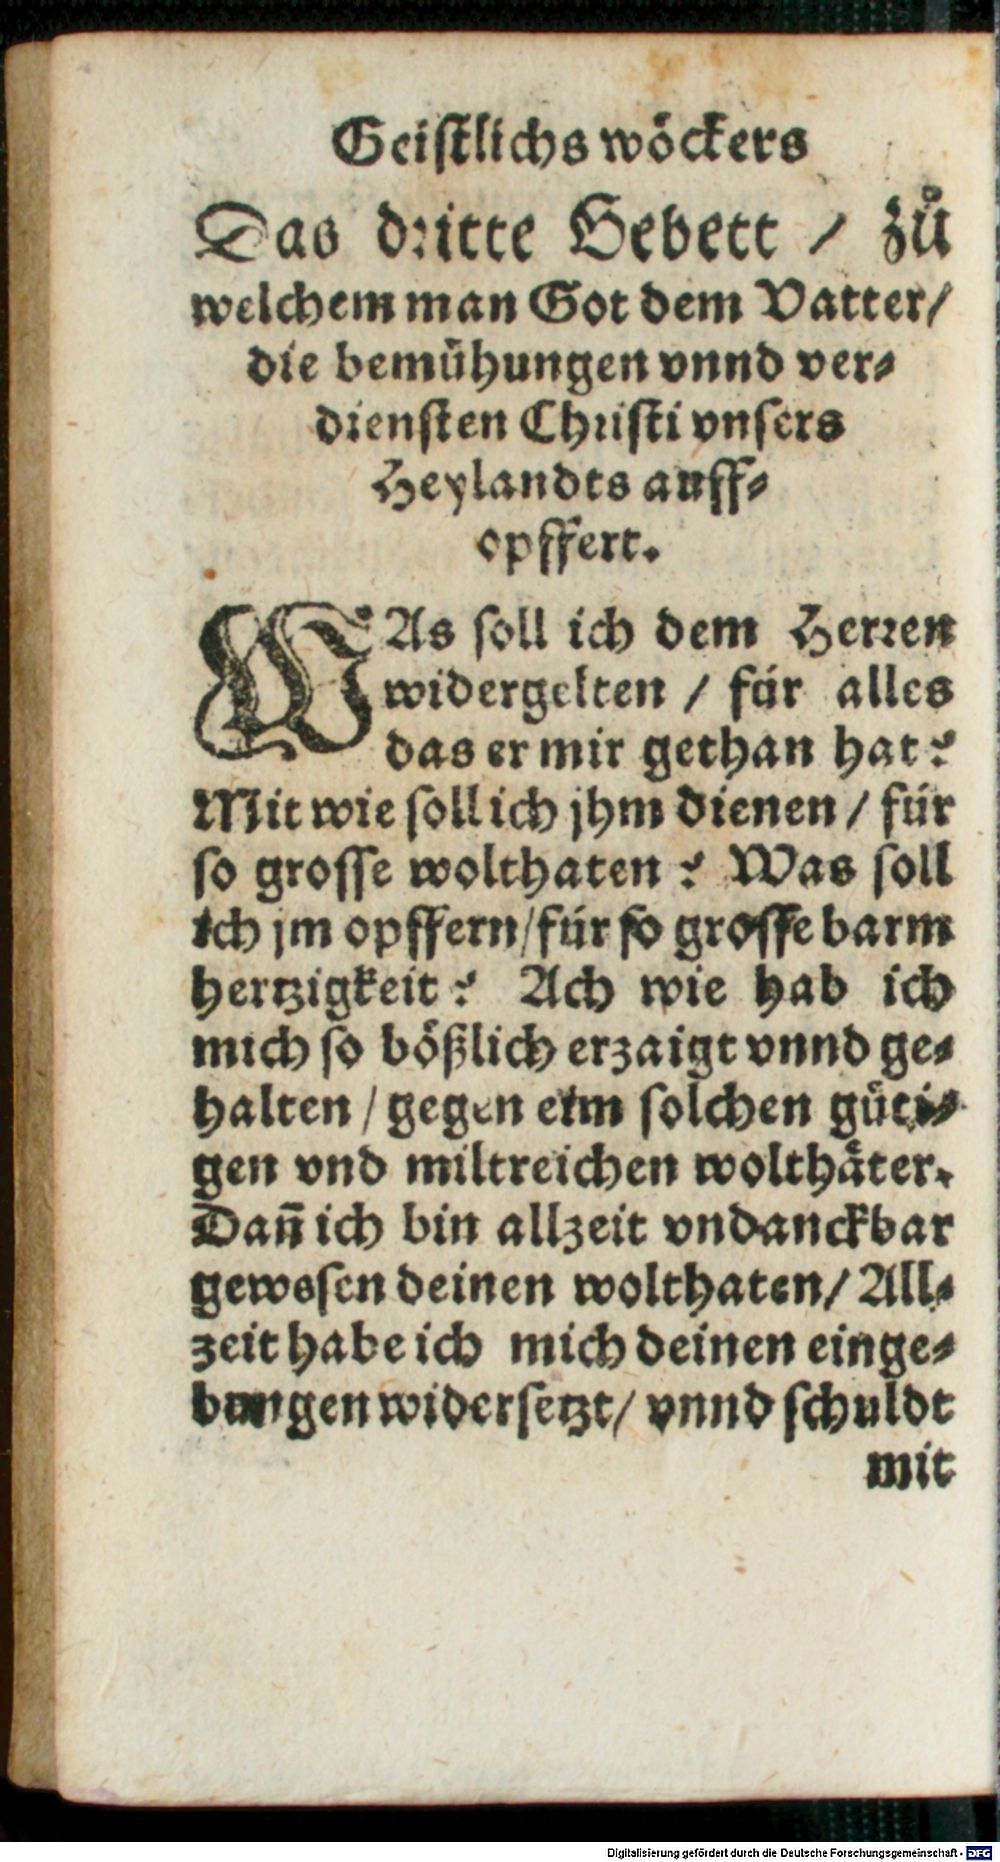 Geistlichs wöckers
Das dritte Gebett / zů
welchem man Got dem Vatter/
die bemühungen vnnd ver-
diensten Christi vnsers
Heylandts auff-
opffert.
WAs soll ich dem Herren
widergelten / für alles
das er mir gethan hat?
Mit wie soll ich jhm dienen / für
so grosse wolthaten? Was soll
ich jm opffern/ für so grosse barm
hertzigkeit? Ach wie hab ich
mich so bößlich erzaigt vnnd ge-
halten / gegen eim solchen güti-
gen vnd miltreichen wolthäter.
Dañ ich bin allzeit vndanckbar
gewesen deinen wolthaten/ All-
zeit habe ich mich deinen einge-
bungen widersetzt/ vnnd schuldt
mit
Digitalisierung gefördert durch die Deutsche Forschungsgemeinschaft - DFG